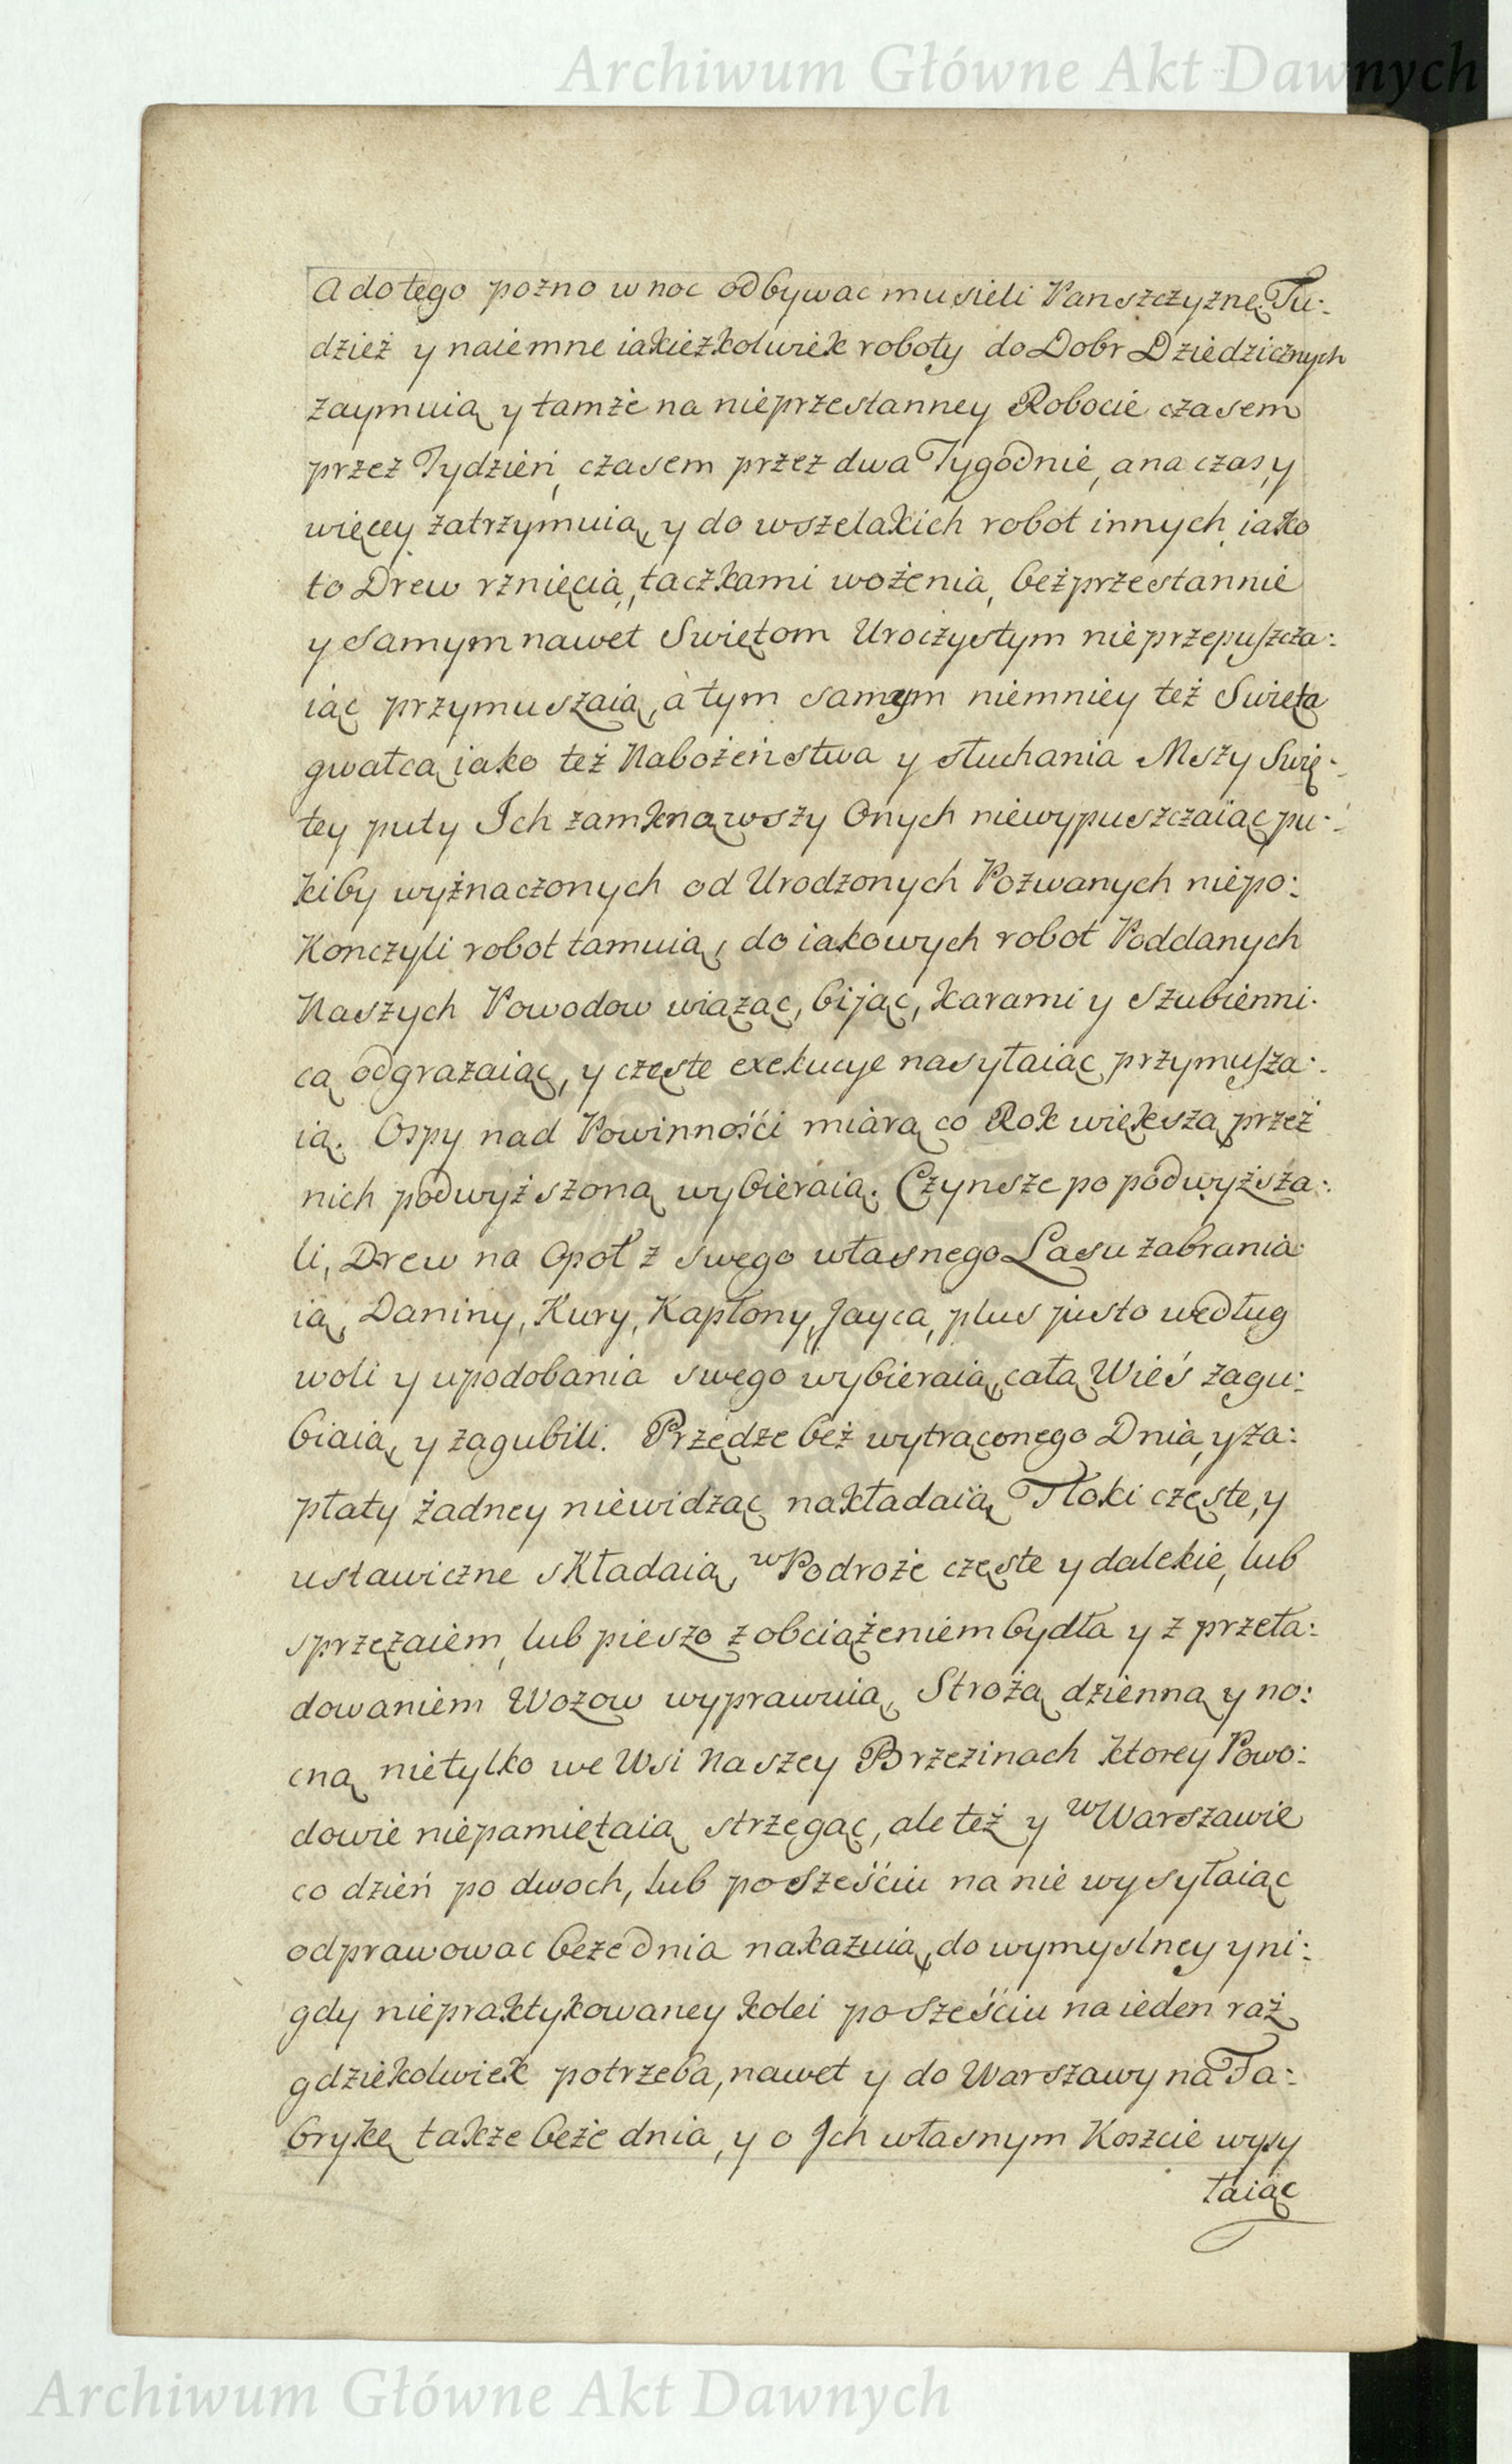 Archiwum Główne Akt Dawnych
A do tego pozno w noc odbywac musieli Panszczyznę. Tu:
dzież y naiemne iakieżkolwiek roboty do Dobr Dziedzicznych
zaymuią y tamże na nieprzestanney Robocie czasem
przez Tydzień, czasem przez dwa Tygodnie, a na czasy
więcey zatrzymuią, y do wszelakich robot innych iako
to Drew rznięcia, taczkami wożenia, bezprzestannie
y samym nawet Swiętom Uroczystym nieprzepuszcza:
iąc przymuszaią, a tym samym niemniey też Swięta
gwałcą iako też Nabożeństwa y słuchania Mszy Swię:
tey puty Ich zamknąwszy Onych niewypuszczaiąc pu:
kiby wyżnaczonych od Urodzonych Pozwanych niepo:
konczyli robot tamuią, do iakowych robot Poddanych
Naszych Powodow wiążąc, biją̨c, karami y szubienni:
cą odgrażaiąc, y częste exekucye nasyłaiąc przymusza:
ią. Ospy nad Powinności miarą co Rok większą przez
nich podwyższoną wybieraią. Czynsze popodwyższa:
li, Drew na Opoł z swego własnego Lasu zabrania:
ią, Daniny, Kury, Kapłony, Jayca, plus justo według
woli y upodobania swego wybieraią, całą Wieś zagu:
biaią, y zagubili. Przędze beż wytrąconego Dnia, y za:
płaty żadney niewidząc nakładaią Tłoki częste, y
ustawiczne składaią, w Podroże częste y dalekie, lub
sprzężaiem, lub pieszo z obciążeniem bydła y z przeła:
dowaniem Wozow wyprawuią, Strożą dzienną y no:
cną nietylko we Wsi Naszey Brzezinach ktorey Powo:
dowie niepamiętaią strzegąc, ale też y w Warszawie
co dzień po dwoch, lub po sześciu na nie wysyłaiąc
odprawowac beze dnia nakazuią, do wymyslney y ni:
gdy niepraktykowaney kolei po sześciu na ieden raz
gdziekolwiek potrzeba, nawet y do Warszawy na Fa:
brykę takze beże dnia, y o Jch własnym Koszcie wysy
łaiąc
Archiwum Główne Akt Dawnych